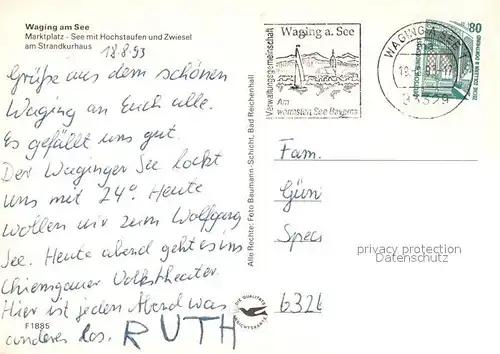 Waging am See
Marktplatz - See mit Hochstaufen und Zwiesel
am Strandkurhaus
18.8.93
Grüße aus dem schönen
Waging an Euch alle.
Es gefällt uns gut.
Der Waginger See lockt
uns mit 24°. Heute
wollen wir zum Wolfgang
See. Heute abend geht es ins
Chiemgauer Volkstheater.
Hier ist jeden Abend was
anderes los. RUTH
F1885
Alle Rechte: Foto Baumann-Schicht, Bad Reichenhall
DIE QUALITÄTS
ANSICHTSKARTE
Verwaltungsgemeinschaft
Waging a. See
Am
wärmsten See Bayerns
WAGING A. SEE
83329
80
DEUTSCHE BUNDESPOST
ZECHE ZOLLERN II DORTMUND
Fam.
Gün
Spec
6326
privacy protection
Datenschutz